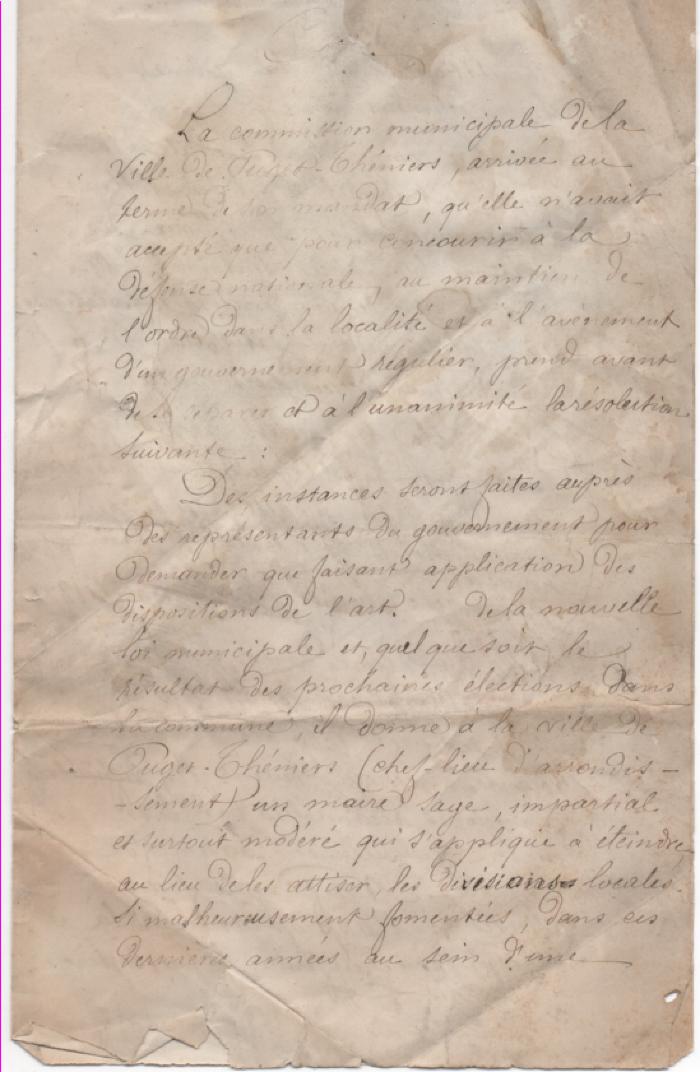 La commission municipale de la
Ville de Puget-Théniers, arrivée au
terme de son mandat, qu'elle n'avait
accepté que pour concourir à la
défense nationale, au maintien de
l'ordre dans la localité et à l'avènement
d'un gouvernement régulier, prend avant
de se séparer et à l'unanimité la résolution
suivante :
Des instances seront faites auprès
des représentants du gouvernement pour
demander que faisant application des
dispositions de l'art. de la nouvelle
loi municipale et, quel que soit le
résultat des prochaines élections dans
la commune, il donne à la ville de
Puget-Théniers (chef-lieu d'arrondis-
-sement) un maire sage, impartial
et surtout modéré qui s'applique à éteindre,
au lieu de les attiser, les divisions locales
si malheureusement fomentées, dans ces
dernières années au sein d'une